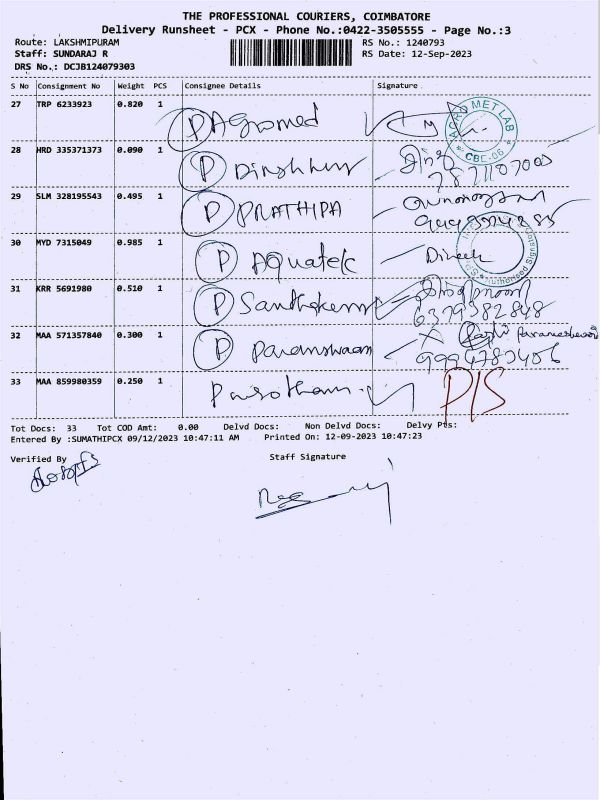 THE PROFESSIONAL COURIERS, COIMBATORE
Delivery Runsheet - PCX - Phone No.:0422-3505555 - Page No.:3
Route: LAKSHMIPURAM RS No.: 1240793
Staff: SUNDARAJ R RS Date: 12-Sep-2023
DRS No.: DCJB124079303
S No Consignment No Weight PCS Consignee Details Signature
27 TRP 6233923 0.820 1 P Agromed AGRO MET LAB CBE-06
28 HRD 335371373 0.090 1 P
29 SLM 328195543 0.495 1 P PRATHIPA
30 MYD 7315049 0.985 1 P Aquatek Dinesh
31 KRR 5691980 0.510 1 P 6379382848
32 MAA 571357840 0.300 1 P 9994783406
33 MAA 859980359 0.250 1 P/S
Tot Docs: 33 Tot COD Amt: 0.00 Delvd Docs: Non Delvd Docs: Delvy Pts:
Entered By :SUMATHIPCX 09/12/2023 10:47:11 AM Printed On: 12-09-2023 10:47:23
Verified By Staff Signature